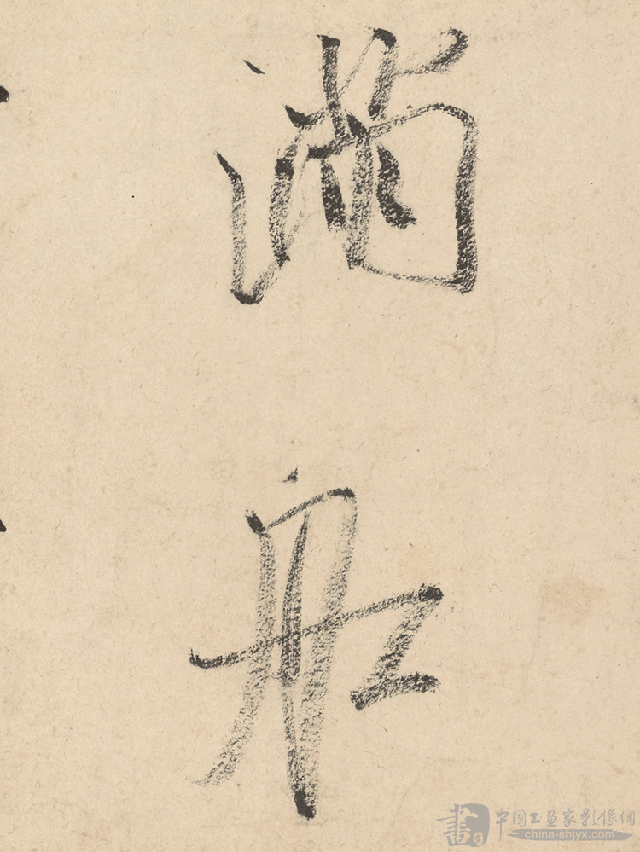 滿
舡
書
中国书画家影像網
china-shjyx.com